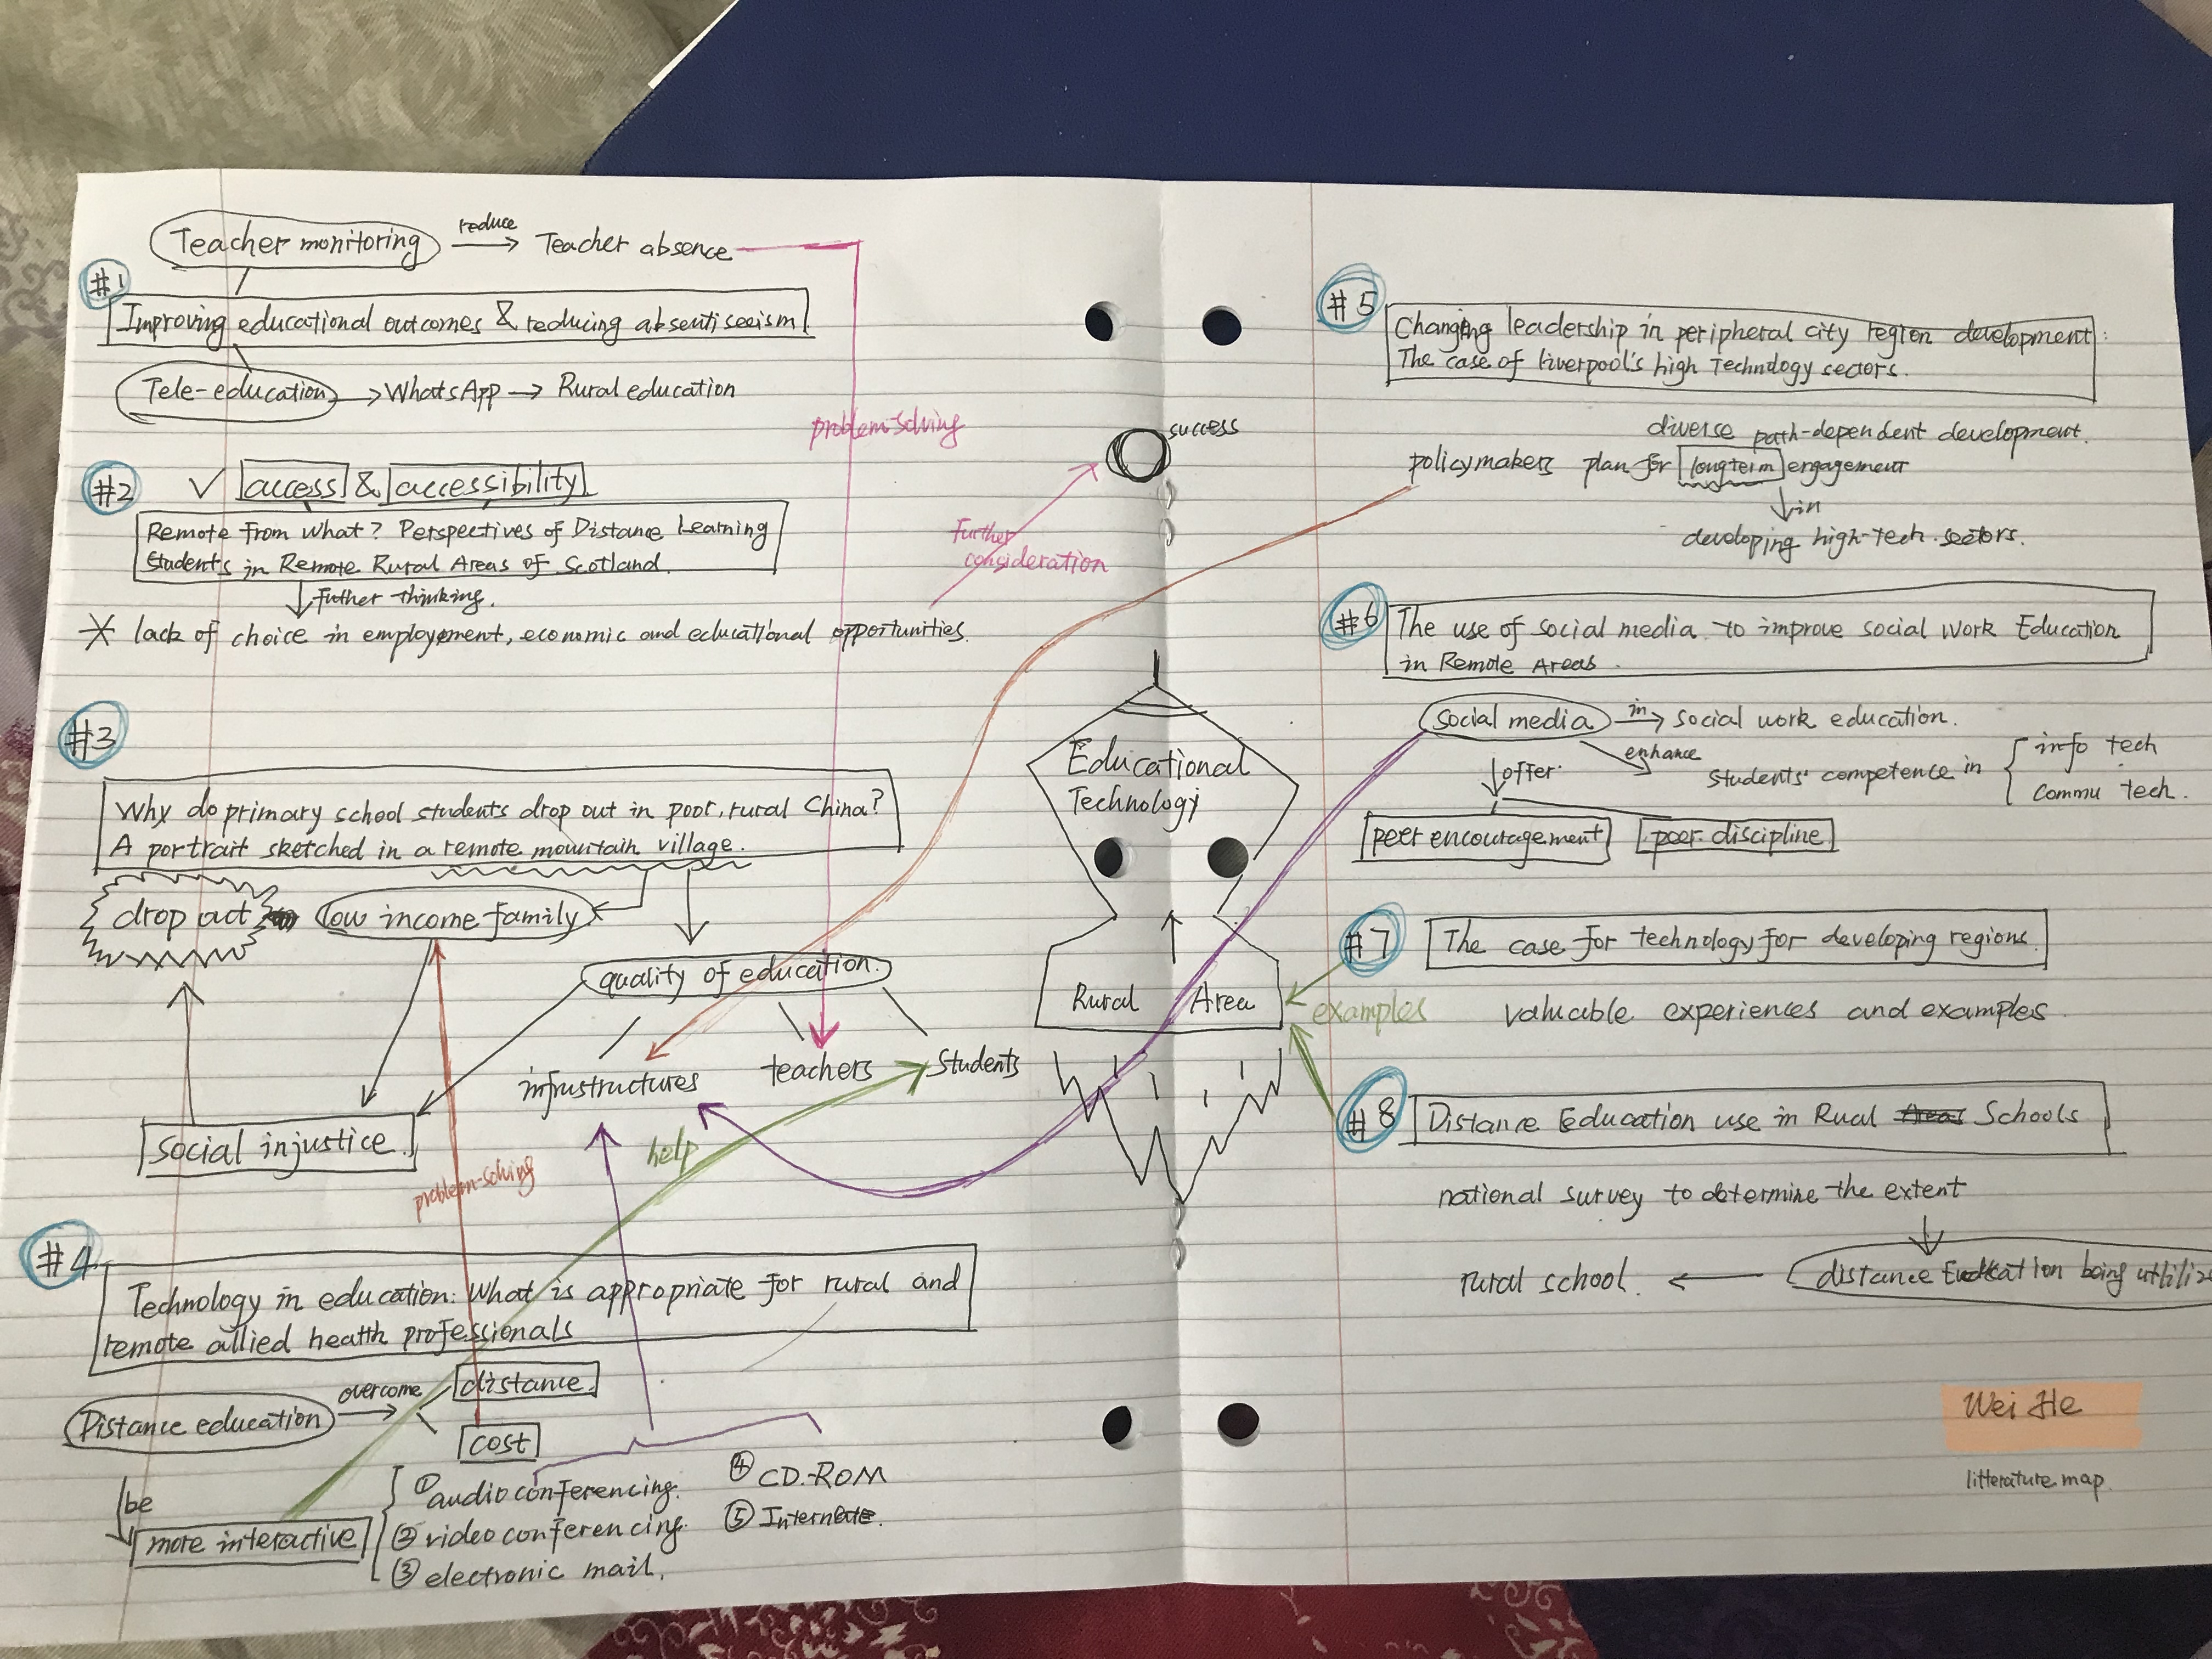 Teacher monitoring reduce Teacher absence
#1
Improving educational outcomes & reducing absentiseeism.
Tele-education WhatsApp Rural education
problem-solving
#2 access & accessibility
Remote from what? Perspectives of Distance Learning
Students in Remote Rural Areas of Scotland.
Futher thinking.
lack of choice in employement, economic and educational opportunities.
Further
consideration
success
#3
Why do primary school students drop out in poor, rural China?
A portrait sketched in a remote mountain village.
drop out low income family
quality of education.
infrustructures teachers Students
social injustice.
help
problem-solving
Educational
Technology
Rural Area
#4
Technology in education: What is appropriate for rural and
remote allied health professionals
Distance education overcome distance.
cost
be
more interactive
① audio conferencing.
② video conferencing.
③ electronic mail.
④ CD-ROM
⑤ Internete.
#5
Changing leadership in peripheral city region development:
The case of liverpool's high Technology sectors.
diverse path-dependent development.
policymakers plan for longterm engagement
in
developing high-tech sectors.
#6
The use of social media to improve social work Education
in Remote Areas.
social media in social work education.
enhance
offer
students' competence in
info tech
commu tech.
peer encouragement peer discipline
#7 The case for technology for developing regions.
examples
valuable experiences and examples
#8 Distance Education use in Rual Areas Schools
national survey to determine the extent
rural school. distance being
Wei He
litterature map.